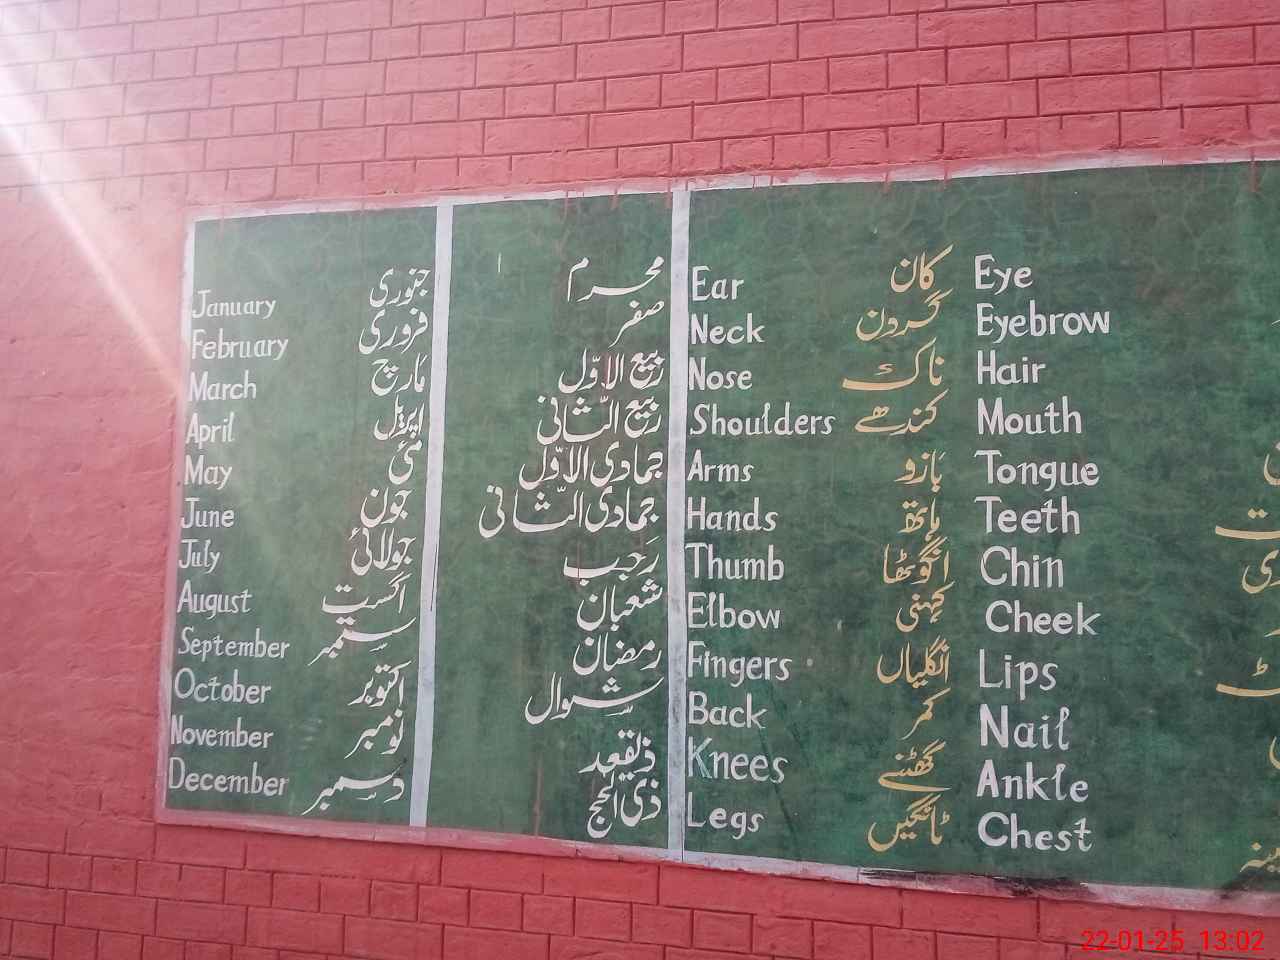 January جنوری
February فروری
March مارچ
April اپریل
May مئی
June جون
July جولائی
August اگست
September ستمبر
October اکتوبر
November نومبر
December دسمبر
محرم
صفر
ربیع الاوّل
ربیع الثّانی
جمادی الاوّل
جمادی الثّانی
رجب
شعبان
رمضان
شوال
ذیقعد
ذی الحج
Ear کان
Neck گردن
Nose ناک
Shoulders کندھے
Arms بازو
Hands ہاتھ
Thumb انگوٹھا
Elbow کہنی
Fingers انگلیاں
Back کمر
Knees گھٹنے
Legs ٹانگیں
Eye
Eyebrow
Hair
Mouth
Tongue
Teeth
Chin
Cheek
Lips
Nail
Ankle
Chest
22-01-25 13:02